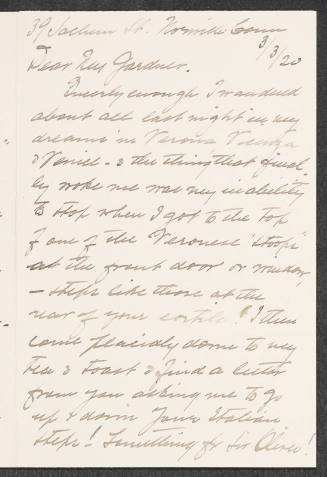 39 Sachem St. Norwich Conn
3/3/20
Dear Mrs Gardner.
Queerly enough I wandered
about all last night in my
dreams in Verona Vicenza
& Venice - & the thing that final
ly woke me was my inability
to stop when I got to the top
of one of the Veronese "stoops"
at the front door or window,
- steps like those at the
rear of your cortile! I then
come placidly down to my
tea & toast & find a letter
from you asking me to go
up & down your Italian
steps! Something for Sir Oliver!